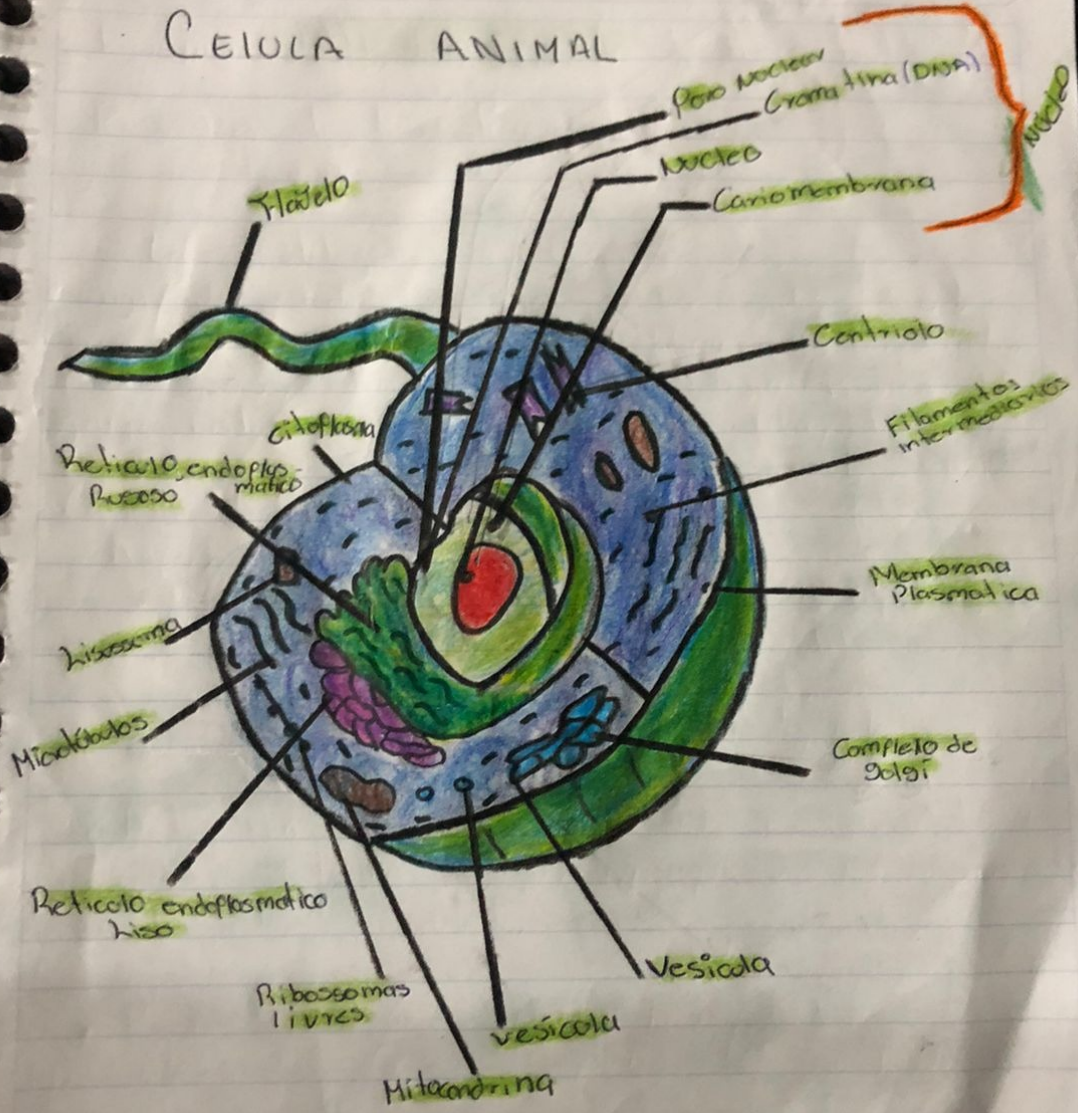 CELULA ANIMAL
Poro Nuclear
Cromatina (DNA)
Nucleo
Cariomembrana
Núcleo
Flajelo
Centriolo
Filamentos
intermediarios
citoplasma
Reticulo endoplas-
matico
Rugoso
Membrana
Plasmatica
Lisossoma
Microtúbulos
Complexo de
golgi
Reticolo endoplasmatico
Liso
Ribossomas
livres
Vesicola
vesícola
Mitocondrina